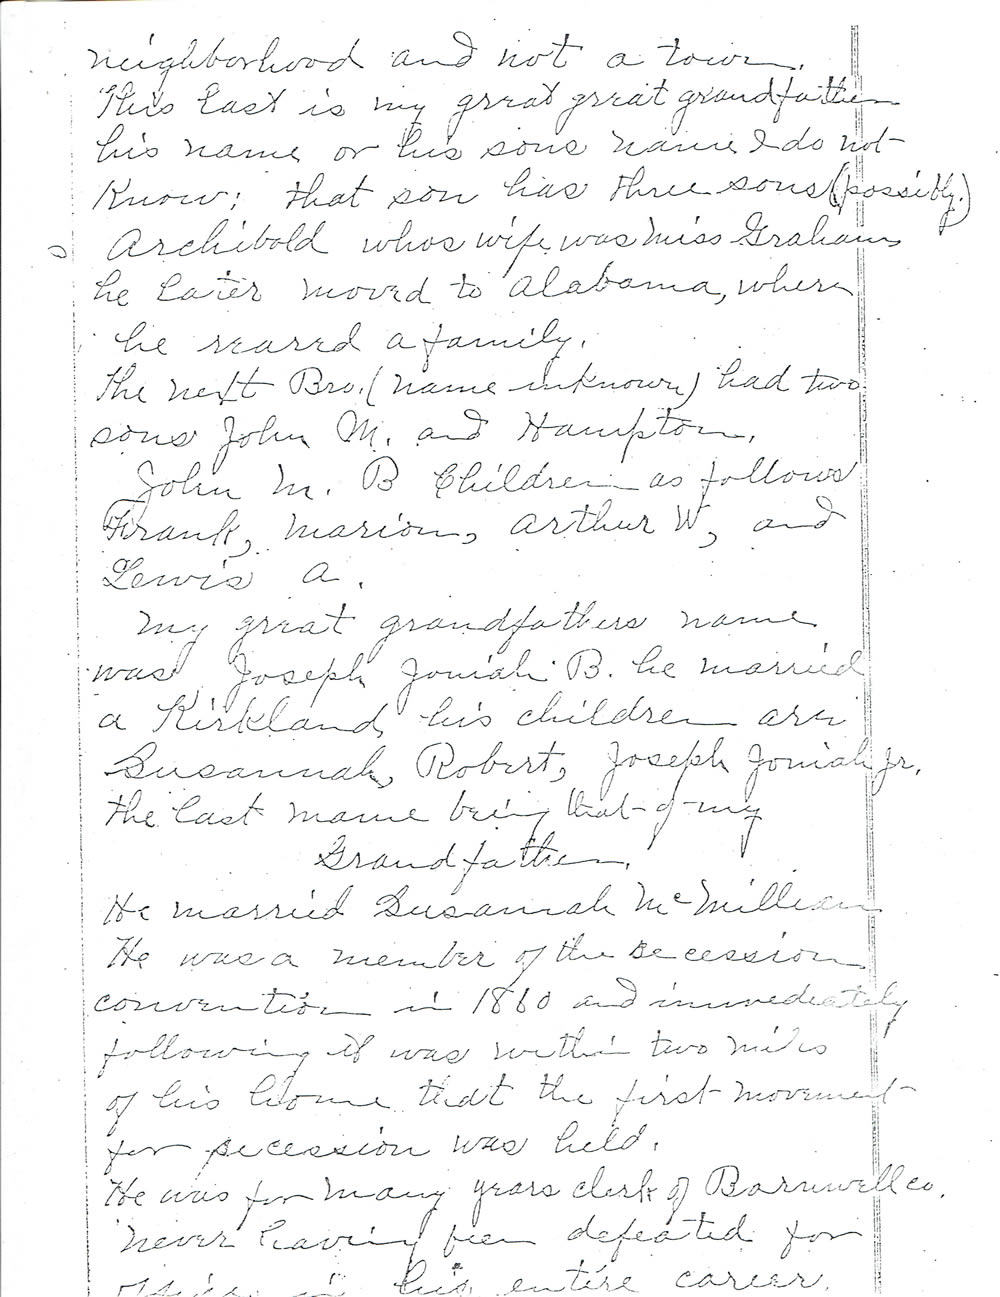 neighborhood and not a town.
This last is my great great grandfather
his name or his sons name I do not
know; that son has three sons (possibly.)
Archibald whos wife was Miss Graham
he later moved to Alabama, where
he reared a family.
the next Bro. (name inknown) had two
sons John M. and Hampton.
John M. B Children as follows
Frank, Marion, Arthur W, and
Lewis A.
My great grandfathers name
was Joseph Joniah B. he married
a Kirkland, his children are
Susannah, Robert, Joseph Joniah Jr.
the last name being that of my
Grandfather.
He married Susannah McMillian
He was a member of the secession
convention in 1860 and immediately
following it was within two miles
of his home that the first movement
for secession was held.
He was for many years clerk of Barnwell co.
never having been defeated for
office in his entire career.